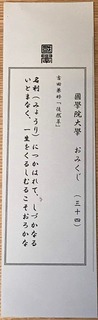 國學院大學 おみくじ (三十四)
吉田兼好「徒然草」
名利(みょうり)につかはれて、しづかなる
いとまなく、一生をくるしむるこそおろかな